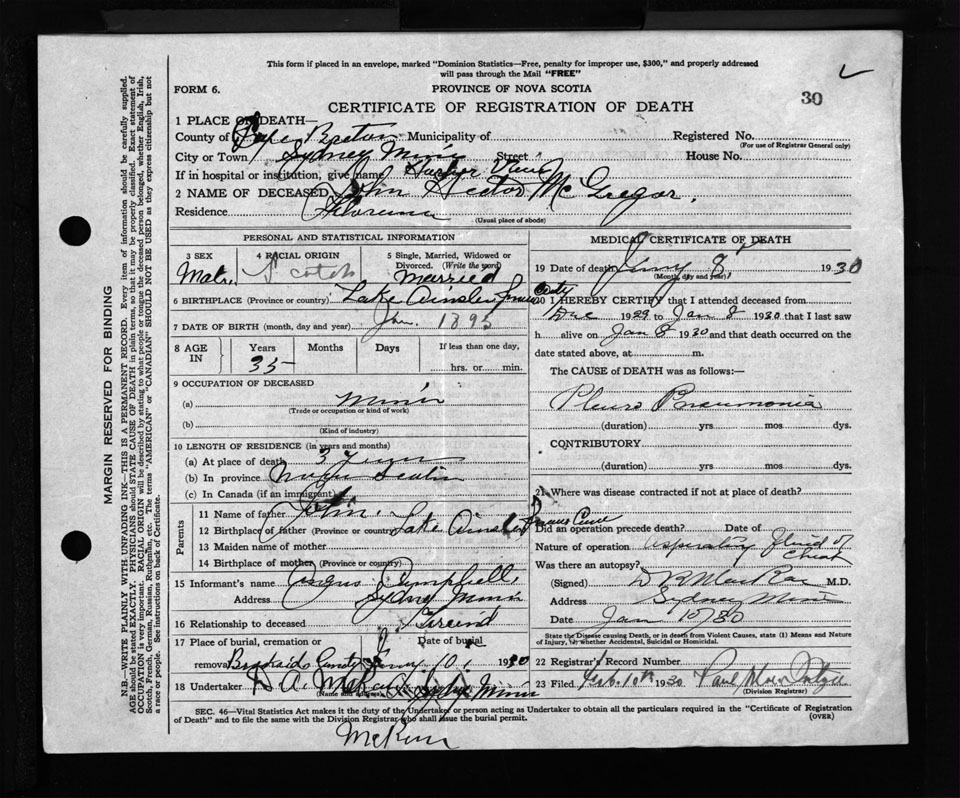 This form if placed in an envelope, marked "Dominion Statistics—Free, penalty for improper use, $300," and properly addressed
will pass through the Mail "FREE"
FORM 6.
PROVINCE OF NOVA SCOTIA
30
CERTIFICATE OF REGISTRATION OF DEATH
1 PLACE OF DEATH—
County of Cape Breton Municipality of Registered No.
(For use of Registrar General only)
City or Town Sydney Mines Street House No.
If in hospital or institution, give name Harbor View
2 NAME OF DECEASED John Hector McGregor.
Residence Florence
(Usual place of abode)
PERSONAL AND STATISTICAL INFORMATION
3 SEX 4 RACIAL ORIGIN 5 Single, Married, Widowed or Divorced. (Write the word)
Male Scotch Married
6 BIRTHPLACE (Province or country) Lake Ainslie
7 DATE OF BIRTH (month, day and year) Jan. 1895
8 AGE IN Years Months Days If less than one day,
35 hrs. or min.
9 OCCUPATION OF DECEASED
(a) Miner
(Trade or occupation or kind of work)
(b)
(Kind of industry)
10 LENGTH OF RESIDENCE (in years and months)
(a) At place of death 3 years
(b) In province Nova Scotia
(c) In Canada (if an immigrant)
Parents
11 Name of father John
12 Birthplace of father (Province or country) Lake Ainslie
13 Maiden name of mother
14 Birthplace of mother (Province or country)
15 Informant's name Angus Campbell
Address Sydney Mines
16 Relationship to deceased Friend
17 Place of burial, cremation or Date of burial
removal Jany 10, 1930
18 Undertaker Sydney Mines
(Name and address)
MEDICAL CERTIFICATE OF DEATH
19 Date of death Jany 8, 1930
(Month, day and year)
20 I HEREBY CERTIFY that I attended deceased from
Dec 1929 to Jan 8 1930 that I last saw
h alive on Jan 8 1930 and that death occurred on the
date stated above, at m.
The CAUSE of DEATH was as follows:—
Pleuro Pneumonia
(duration) yrs mos dys.
CONTRIBUTORY
(duration) yrs mos dys.
21 Where was disease contracted if not at place of death?
Did an operation precede death? Date of
Nature of operation aspirating fluid of
chest
Was there an autopsy?
(Signed) D R MacRae M.D.
Address Sydney Mines
Date Jan 10/30
State the Disease causing Death, or in death from Violent Causes, state (1) Means and Nature
of Injury, (2) whether Accidental, Suicidal or Homicidal.
22 Registrar's Record Number
23 Filed Feb. 10th 1930 Paul
(Division Registrar)
SEC. 46—Vital Statistics Act makes it the duty of the Undertaker or person acting as Undertaker to obtain all the particulars required in the "Certificate of Registration
of Death" and to file the same with the Division Registrar who shall issue the burial permit.
(OVER)
MARGIN RESERVED FOR BINDING
N.B.—WRITE PLAINLY WITH UNFADING INK—THIS IS A PERMANENT RECORD. Every item of information should be carefully supplied.
AGE should be stated EXACTLY. PHYSICIANS should STATE CAUSE OF DEATH in plain terms, so that it may be properly classified. Exact statement of
OCCUPATION is very important. RACIAL ORIGIN will be described by stating to what people or tongue the deceased person belonged, whether English, Irish,
Scotch, French, German, Russian, Ruthenian, etc. The terms "AMERICAN" or "CANADIAN" SHOULD NOT BE USED as they express citizenship but not
a race or people. See instructions on back of Certificate.